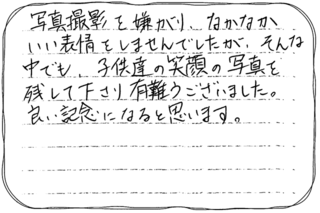 写真撮影を嫌がり、なかなか
いい表情をしませんでしたが、そんな
中でも、子供達の笑顔の写真を
残して下さり有難うございました。
良い記念になると思います。